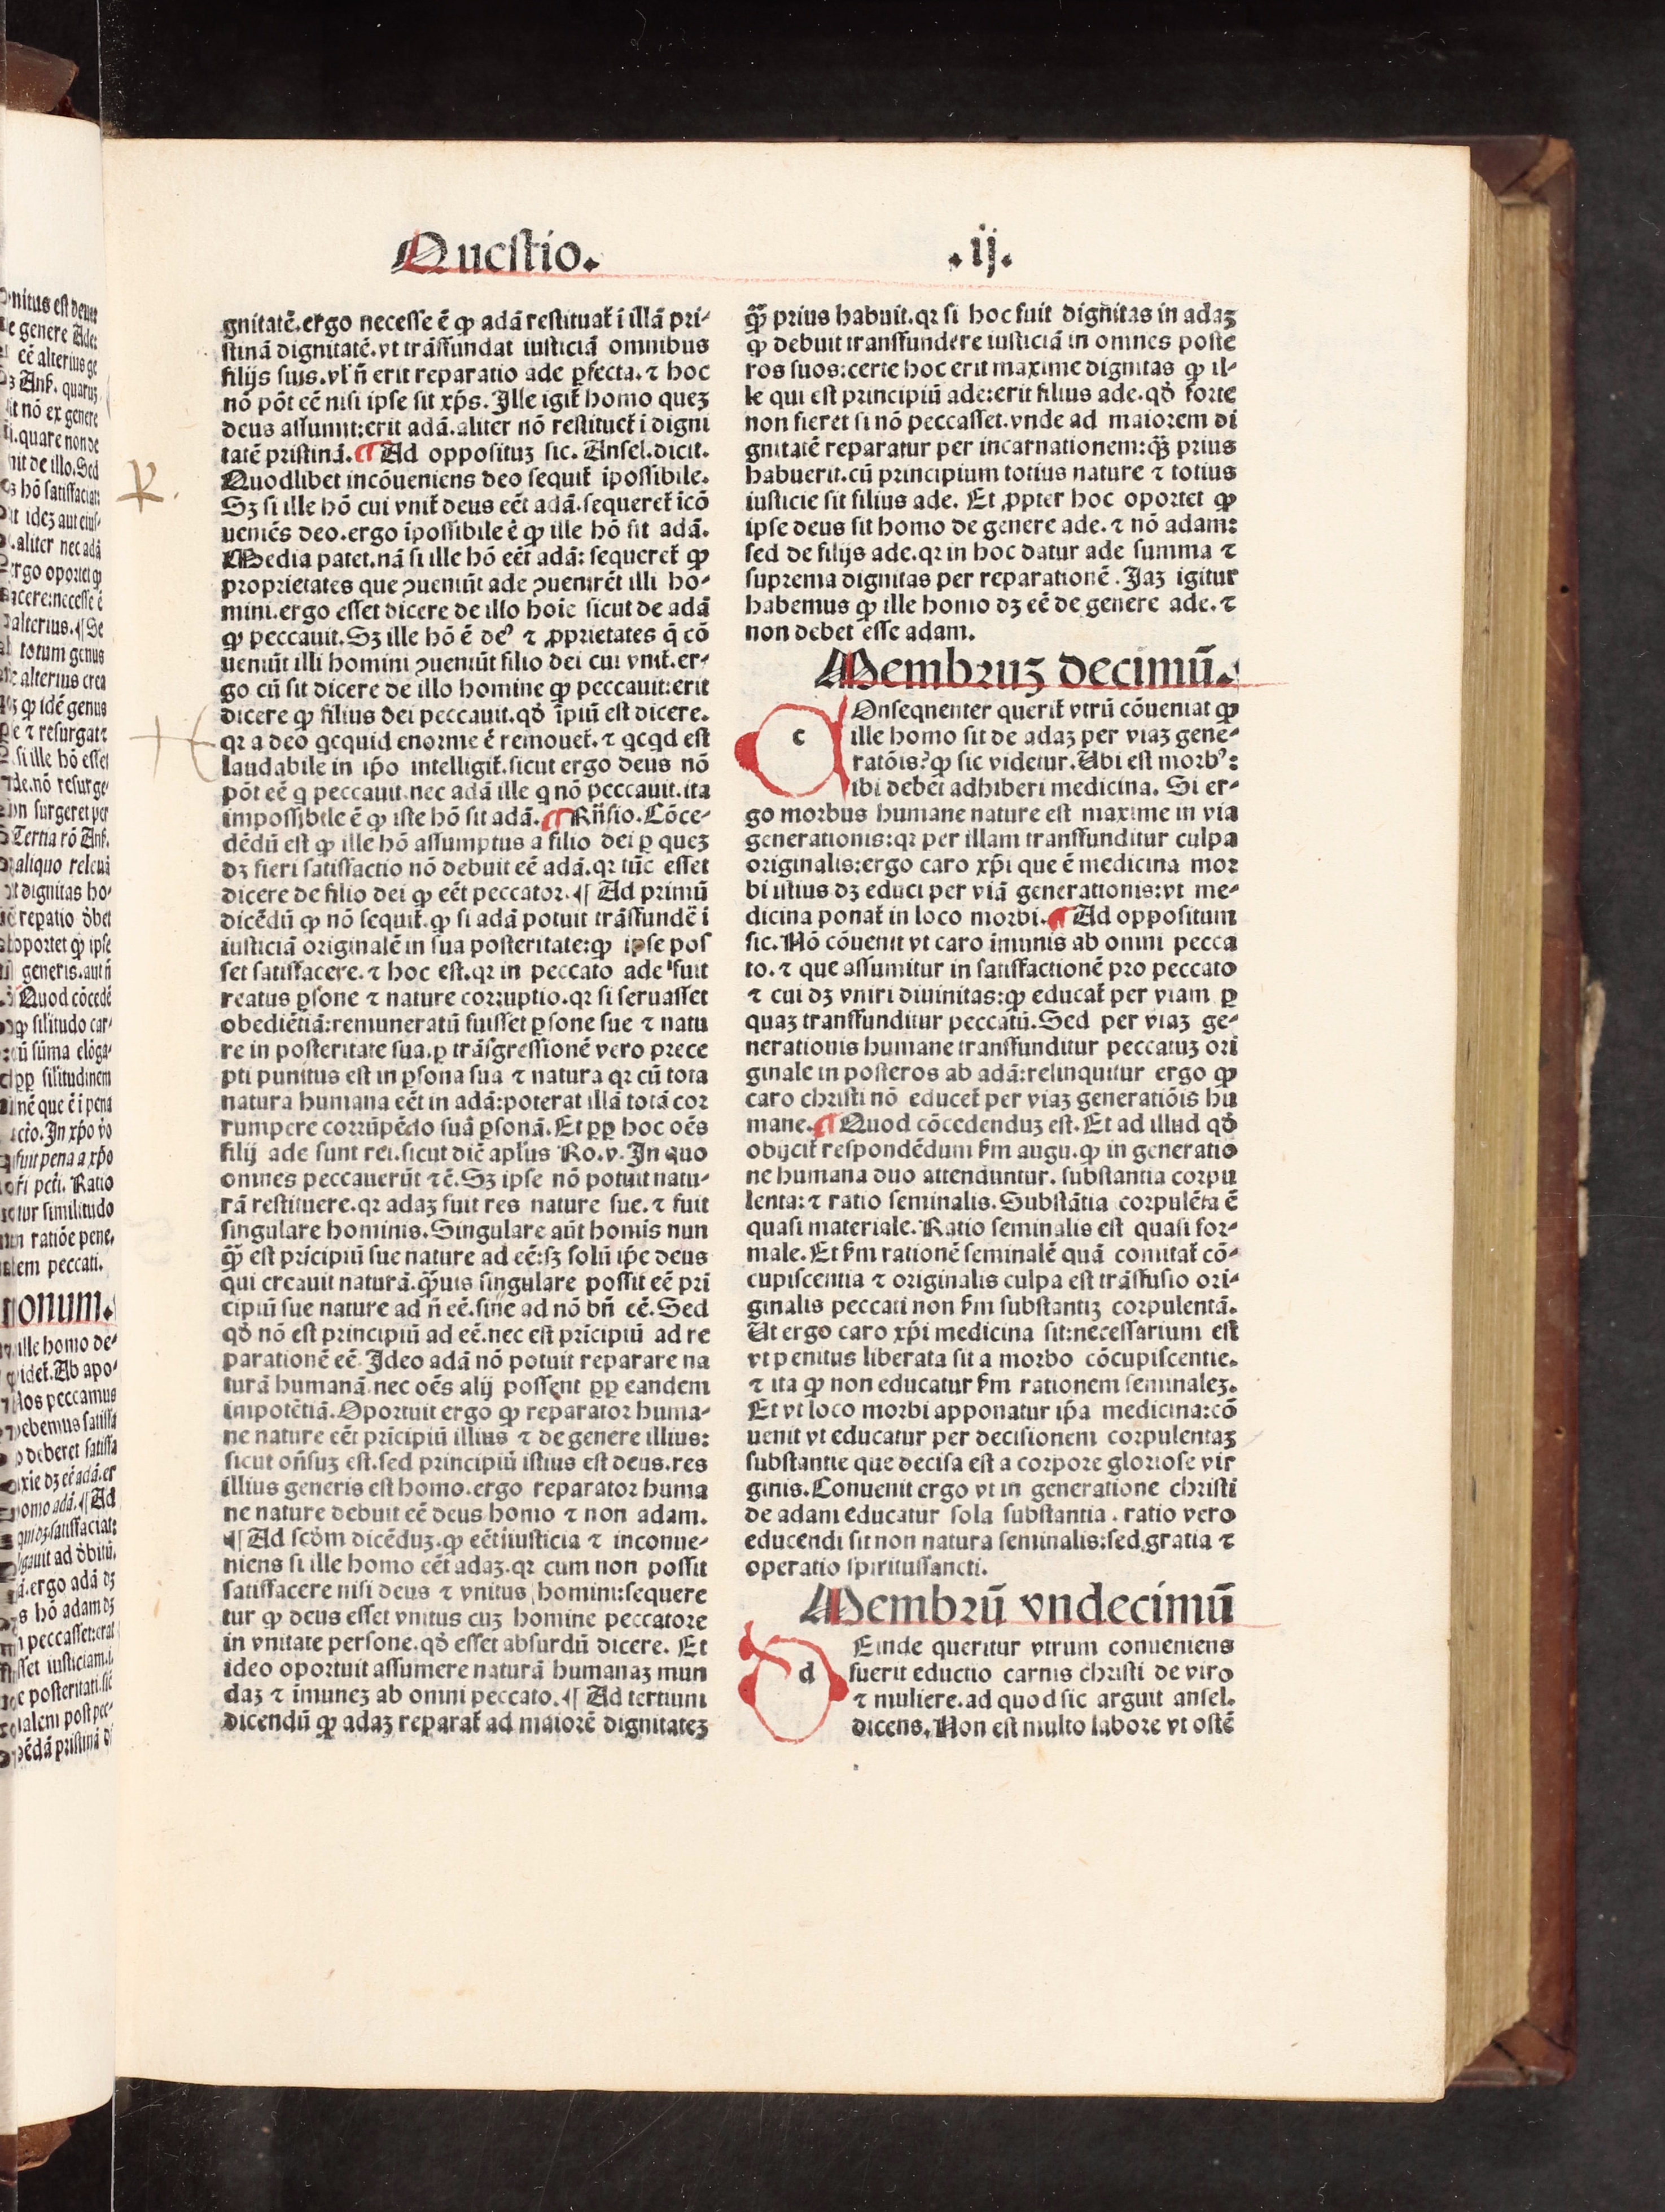 Questio.
.ij.
gnitatē.ergo necesse ē ꝙ adā restituat̄ i illā pri-
stinā dignitatē.vt trāsfundat iusticiā omnibus
filijs suis.vl' n̄ erit reparatio ade ꝑfecta.⁊ hoc
nō pōt eē nisi ipse sit xp̄s. Ille igit̄ homo quez
deus assumit:erit adā.aliter nō restituet̄ i digni
tatē pristinā.¶ Ad opposituꝫ sic. Ansel.dicit.
Quodlibet incōueniens deo sequit̄ ipossibile.
Sꝫ si ille hō cui vnit̄ deus eēt adā.sequeret̄ icō
ueniēs deo.ergo ipossibile ē ꝙ ille hō sit adā.
Media patet.nā si ille hō eēt adā: sequeret̄ ꝙ
proprietates que ꝯueniūt ade ꝯuenirēt illi ho-
mini.ergo esset dicere de illo hoie sicut de adā
ꝙ peccauit.Sꝫ ille hō ē de⁹ ⁊ ꝓprietates q̄ cō
ueniūt illi homini ꝯueniūt filio dei cui vnit̄.er-
go cū sit dicere de illo homine ꝙ peccauit:erit
dicere ꝙ filius dei peccauit.qđ ip̄iū est dicere.
qꝛ a deo qcquid enorme ē remouet̄.⁊ qcqd est
laudabile in ip̄o intelligit̄.sicut ergo deus nō
pōt eē q peccauit.nec adā ille q nō peccauit.ita
impossibile ē ꝙ iste hō sit adā.¶ Rn̄sio.Cōce-
dēdū est ꝙ ille hō assumptus a filio dei ꝑ quez
dꝫ fieri satisfactio nō debuit eē adā.qꝛ tūc esset
dicere de filio dei ꝙ eēt peccator.¶ Ad primū
dicēdū ꝙ nō sequit̄.ꝙ si adā potuit trāsfundē i
iusticiā originalē in sua posteritate:ꝙ ipse pos
set satisfacere.⁊ hoc est.qꝛ in peccato ade fuit
reatus ꝑsone ⁊ nature corruptio.qꝛ si seruasset
obediētiā:remuneratū fuisset ꝑsone sue ⁊ natu
re in posteritate sua.ꝑ trāsgressionē vero prece
pti punitus est in ꝑsona sua ⁊ natura qꝛ cū tota
natura humana eēt in adā:poterat illā totā cor
rumpere corrūpēdo suā ꝑsonā.Et ꝓp hoc oēs
filij ade sunt rei.sicut dic̄ apl'us Ro.v.In quo
omnes peccauerūt ⁊c̄.Sꝫ ipse nō potuit natu-
rā restituere.qꝛ adaꝫ fuit res nature sue.⁊ fuit
singulare hominis.Singulare aūt homīs nun
qꝗ̄ est pricipiū sue nature ad eē:sꝫ solū ip̄e deus
qui creauit naturā.qꝗ̄uis singulare possit eē pri
cipiū sue nature ad n̄ eē.siue ad nō bn̄ eē.Sed
qđ nō est principiū ad eē.nec est pricipiū ad re
parationē eē.Ideo adā nō potuit reparare na
turā humanā.nec oēs alij possent ꝓp eandem
impotētiā.Oportuit ergo ꝙ reparator huma-
ne nature eēt pricipiū illius ⁊ de genere illius:
sicut on̄suꝫ est.sed principiū istius est deus.res
illius generis est homo.ergo reparator huma
ne nature debuit eē deus homo ⁊ non adam.
¶ Ad scđm dicēduꝫ.ꝙ eēt iiusticia ⁊ inconue-
niens si ille homo eēt adaꝫ.qꝛ cum non possit
satisfacere nisi deus ⁊ vnitus homini:sequere
tur ꝙ deus esset vnitus cuꝫ homine peccatore
in vnitate persone.qđ esset absurdū dicere. Et
ideo oportuit assumere naturā humanaꝫ mun
daꝫ ⁊ imunez ab omni peccato.¶ Ad tertium
dicendū ꝙ adaꝫ reparat̄ ad maiorē dignitateꝫ
qꝗ̄ prius habuit.qꝛ si hoc fuit dignitas in adaꝫ
ꝙ debuit transfundere iusticiā in omnes poste
ros suos:certe hoc erit maxime dignitas ꝙ il-
le qui est principiū ade:erit filius ade.qđ forte
non fieret si nō peccasset.vnde ad maiorem di
gnitatē reparatur per incarnationem:qꝗ̄ prius
habuerit.cū principium totius nature ⁊ totius
iusticie sit filius ade. Et ꝓpter hoc oportet ꝙ
ipse deus sit homo de genere ade.⁊ nō adam:
sed de filijs ade.qꝛ in hoc datur ade summa ⁊
suprema dignitas per reparationē.Iaꝫ igitur
habemus ꝙ ille homo dꝫ eē de genere ade.⁊
non debet esse adam.
Membruꝫ decimū.
c Onseqnenter querit̄ vtrū cōueniat ꝙ
ille homo sit de adaꝫ per viaꝫ gene-
ratōis?ꝙ sic videtur.Ubi est morb⁹:
ibi debet adhiberi medicina. Si er-
go morbus humane nature est maxime in via
generationis:qꝛ per illam transfunditur culpa
originalis:ergo caro xp̄i que ē medicina mor
bi istius dꝫ educi per viā generationis:vt me-
dicina ponat̄ in loco morbi.¶ Ad oppositum
sic.Nō cōuenit vt caro imunis ab omni pecca
to.⁊ que assumitur in satisfactionē pro peccato
⁊ cui dꝫ vniri diuinitas:ꝙ educat̄ per viam ꝑ
quaꝫ transfunditur peccatū.Sed per viaꝫ ge-
nerationis humane transfunditur peccatuꝫ ori
ginale in posteros ab adā:relinquitur ergo ꝙ
caro christi nō educet̄ per viaꝫ generatiōis hu
mane.¶ Quod cōcedenduꝫ est.Et ad illud qđ
obijcit̄ respondēdum ẜm augu.ꝙ in generatio
ne humana duo attenduntur. substantia corpu
lenta:⁊ ratio seminalis.Substātia corpulēta ē
quasi materiale.Ratio seminalis est quasi for-
male.Et ẜm rationē seminalē quā comitat̄ cō-
cupiscentia ⁊ originalis culpa est trāsfusio ori-
ginalis peccati non ẜm substantiꝫ corpulentā.
Ut ergo caro xp̄i medicina sit:necessarium est
vt penitus liberata sit a morbo cōcupiscentie.
⁊ ita ꝙ non educatur ẜm rationem seminaleꝫ.
Et vt loco morbi apponatur ip̄a medicina:cō
uenit vt educatur per decisionem corpulentaꝫ
substantie que decisa est a corpore gloriose vir
ginis.Conuenit ergo vt in generatione christi
de adam educatur sola substantia.ratio vero
educendi sit non natura seminalis:sed gratia ⁊
operatio spiritussancti.
Membrū vndecimū
d Einde queritur vtrum conueniens
fuerit eductio carnis christi de viro
⁊ muliere.ad quod sic arguit ansel.
dicens.Non est multo labore vt ostē